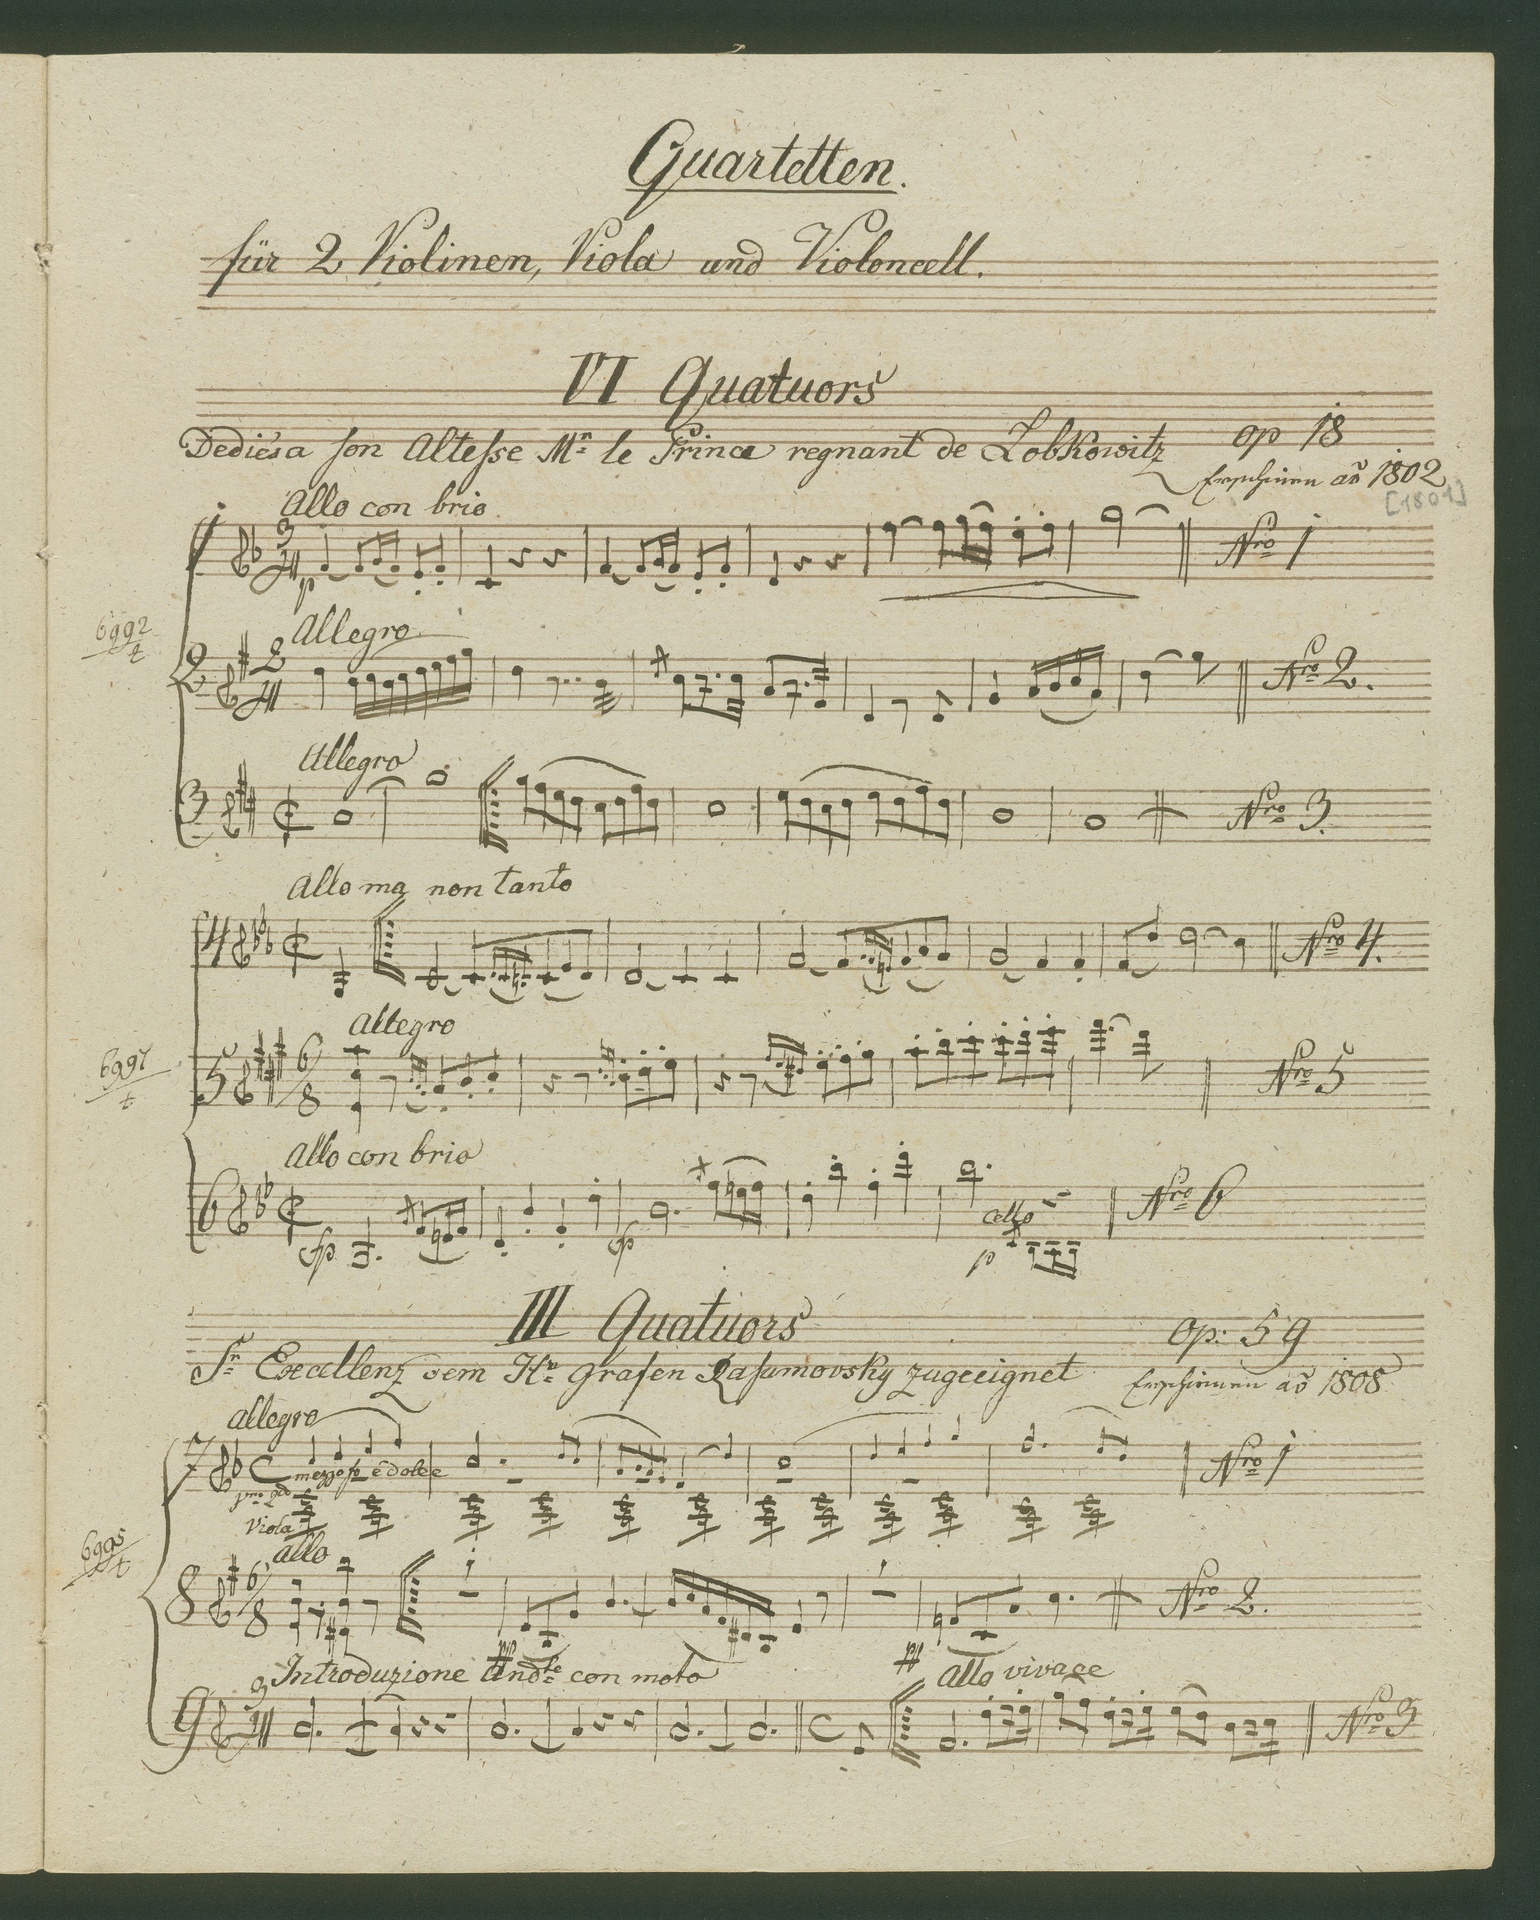 Quartetten.
für 2 Violinen, Viola und Violoncell.
VI Quatuors
Dediés a son Altesse Mr le Prince regnant de Lobkowitz op 18
Erschienen aõ 1802
[1801]
Allo con brio
1 3/4 p Nro 1
6992/t
Allegro
2 2/4 Nro 2.
Allegro
3 Nro 3.
Allo ma non tanto
4 Nro 4.
Allegro
6997/t
5 6/8 Nro 5
Allo con brio
6 fp fp cello p Nro 6
III Quatuors Op: 59
Sr Excellenz dem Hrn Grafen Rasumovsky zugeeignet Erschienen aõ 1808
Allegro
7 C mezzo p e dolce Nro 1
pmo 2do
Viola
6995/t
Allo
8 6/8 Nro 2.
pp pp
Introduzione Andte con moto Allo vivace
9 3/4 C Nro 3